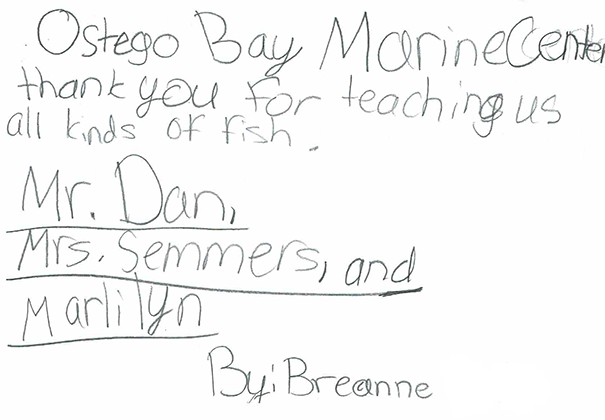 Ostego Bay Marine Center
thank you for teaching us
all kinds of fish.
Mr. Dan,
Mrs. Semmers, and
Marlilyn
By: Breanne